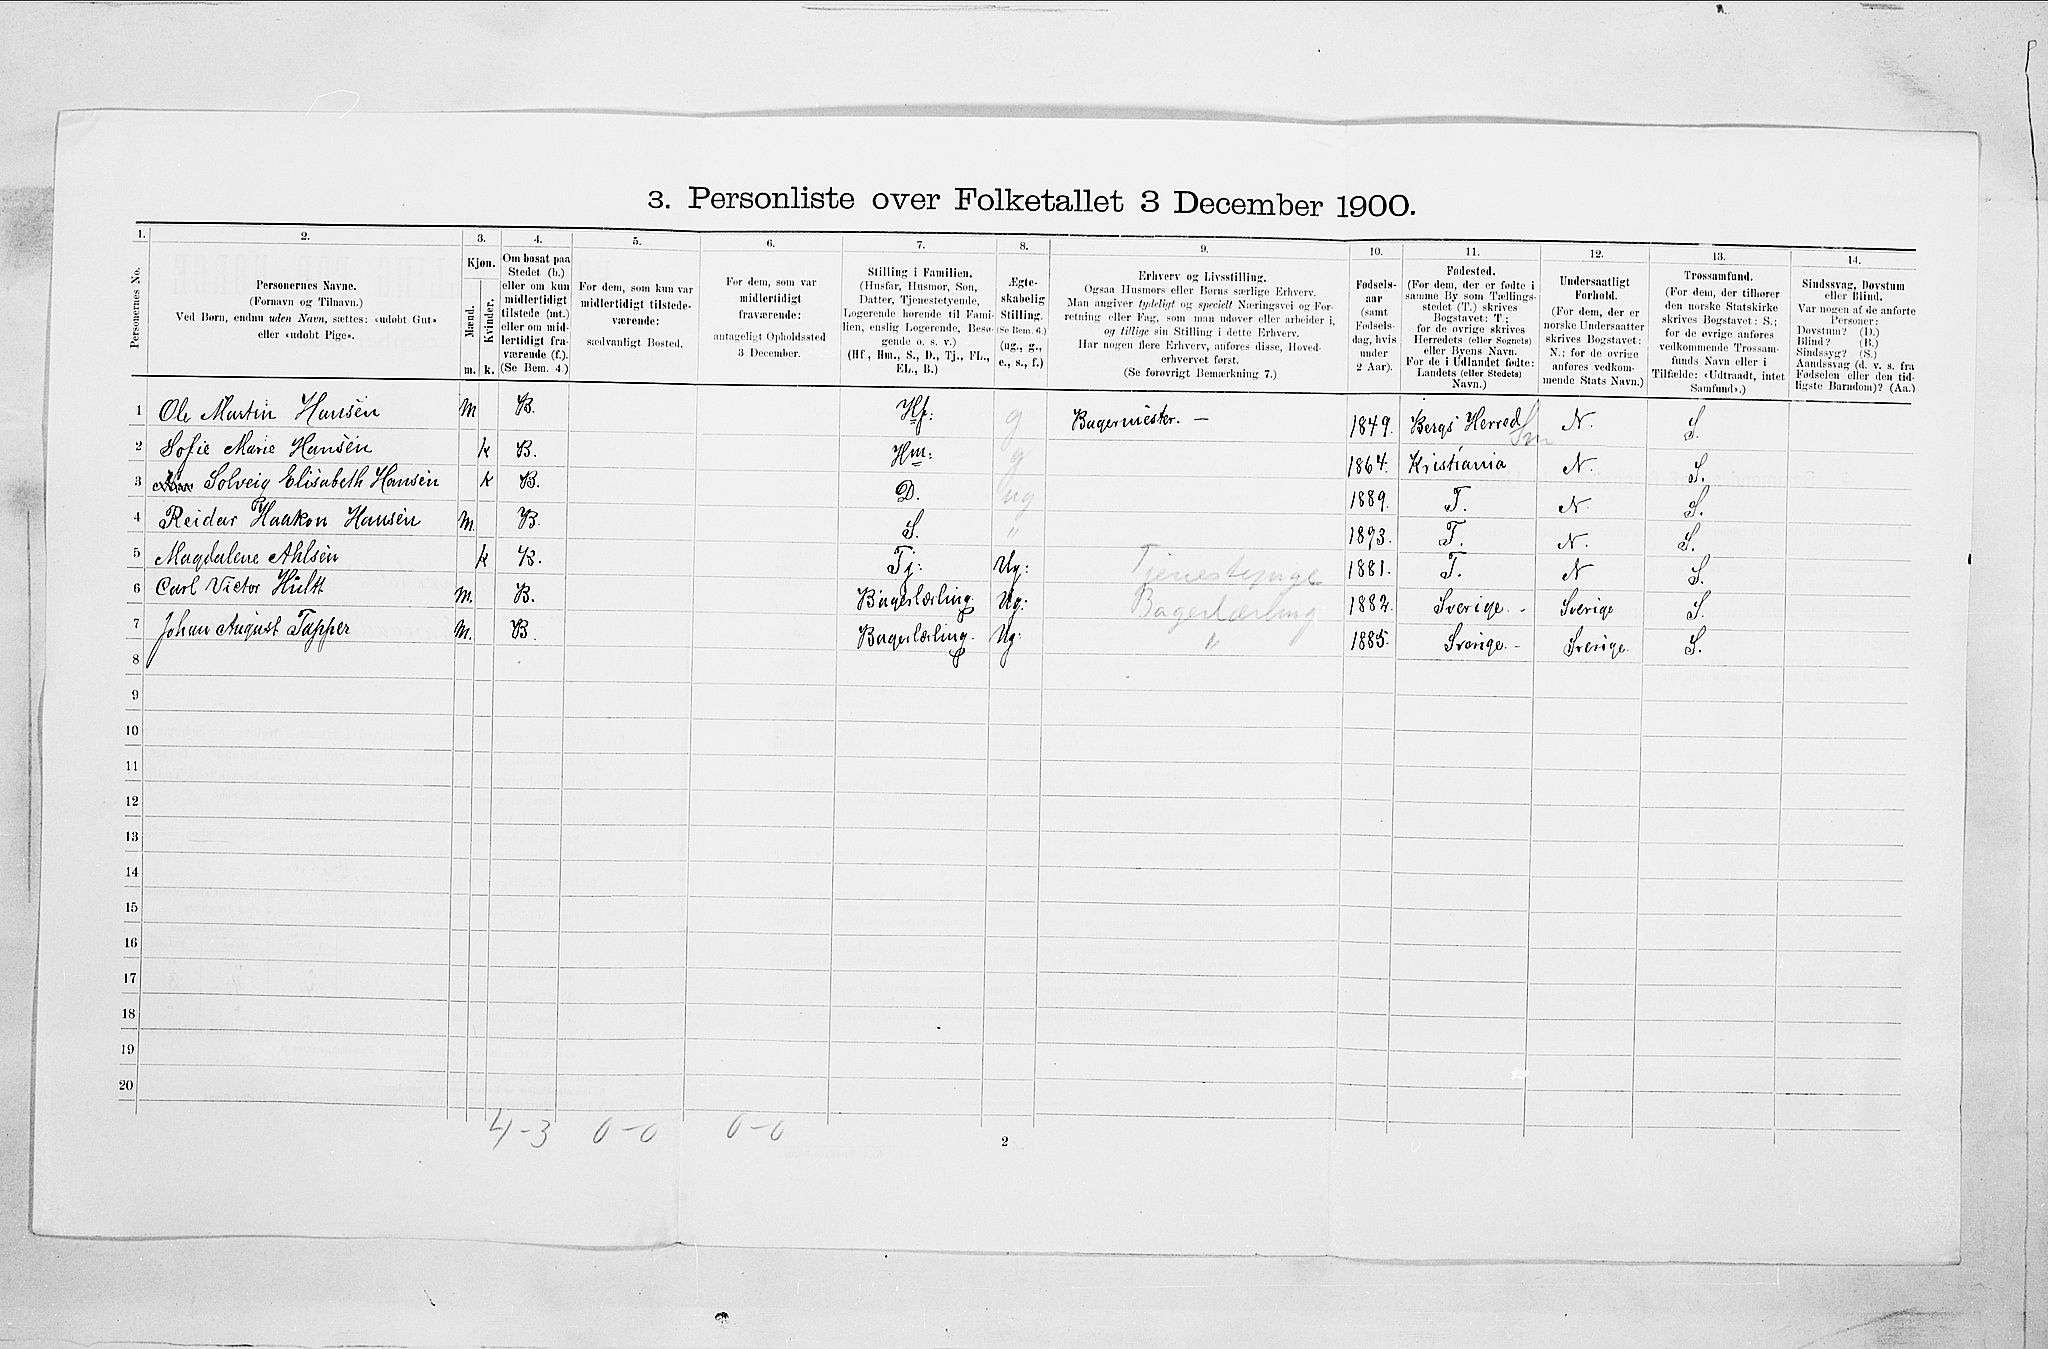 3. Personliste over Folketallet 3 December 1900.
1. 2. 3. 4. 5. 6. 7. 8. 9. 10. 11. 12. 13. 14.
Personernes No.
Personernes Navne.
(Fornavn og Tilnavn.)
Ved Børn, endnu uden Navn, sættes: «udøbt Gut»
eller «udøbt Pige».
Kjøn.
Mænd.
Kvinder.
m. k.
Om bosat paa
Stedet (b.)
eller om kun
midlertidigt
tilstede (mt.)
eller om mid-
lertidigt fra-
værende (f.).
(Se Bem. 4.)
For dem, som kun var
midlertidigt tilstede-
værende:
sædvanligt Bosted.
For dem, som var
midlertidigt
fraværende:
antageligt Opholdssted
3 December.
Stilling i Familien.
(Husfar, Husmor, Søn,
Datter, Tjenestetyende,
Logerende hørende til Fami-
lien, enslig Logerende, Besø-
gende o. s. v.)
(Hf., Hm., S., D., Tj., FL.,
EL., B.)
Ægte-
skabelig
Stilling.
(Se Bem. 6.)
(ug., g.,
e., s., f.)
Erhverv og Livsstilling.
Ogsaa Husmors eller Børns særlige Erhverv.
Man angiver tydeligt og specielt Næringsvei og For-
retning eller Fag, som man udøver eller arbeider i,
og tillige sin Stilling i dette Erhverv.
Har nogen flere Erhverv, anføres disse, Hoved-
erhvervet først.
(Se forøvrigt Bemærkning 7.)
Fødsels-
aar
(samt
Fødsels-
dag, hvis
under
2 Aar).
Fødested.
(For dem, der er fødte i
samme By som Tællings-
stedet (T.) skrives
Bogstavet: T;
for de øvrige skrives
Herredets (eller Sognets)
eller Byens Navn.
For de i Udlandet fødte:
Landets (eller Stedets)
Navn.)
Undersaatligt
Forhold.
(For dem, der er
norske Undersaatter
skrives Bogstavet:
N.; for de øvrige
anføres vedkom-
mende Stats Navn.)
Trossamfund.
(For dem, der tilhører
den norske Statskirke
skrives Bogstavet: S.;
for de øvrige anføres
vedkommende Trossam-
funds Navn eller i
Tilfælde: «Udtraadt, intet
Samfund».)
Sindssvag, Døvstum
eller Blind.
Var nogen af de anførte
Personer:
Døvstum? (D.)
Blind? (B.)
Sindssyg? (S.)
Aandssvag (d. v. s. fra
Fødselen eller den tid-
ligste Barndom)? (Aa.)
1 Ole Martin Hansen M B. Hf: g Bagermester. — 1849. Bergs Herred Sm N. S.
2 Sofie Marie Hansen k B. Hm: g 1864. Kristiania N. S.
3 Solveig Elisabeth Hansen k B. D. ug 1889. T. N. S.
4 Reidar Haakon Hansen M. B. S. " 1893. T. N. S.
5 Magdalene Ahlsen k B. Tj: Ug: Tjenestepige 1881. T. N S.
6 Carl Victor Hultt M. B. Bagerlærling. Ug: Bagerlærling 1882. Sverige. - Sverige S.
7 Johan August Tapper M. B. Bagerlærling. Ug: " 1885. Sverige. - Sverige. S.
8
9
10
11
12
13
14
15
16
17
18
19
20
4-3 0-0 0-0
2